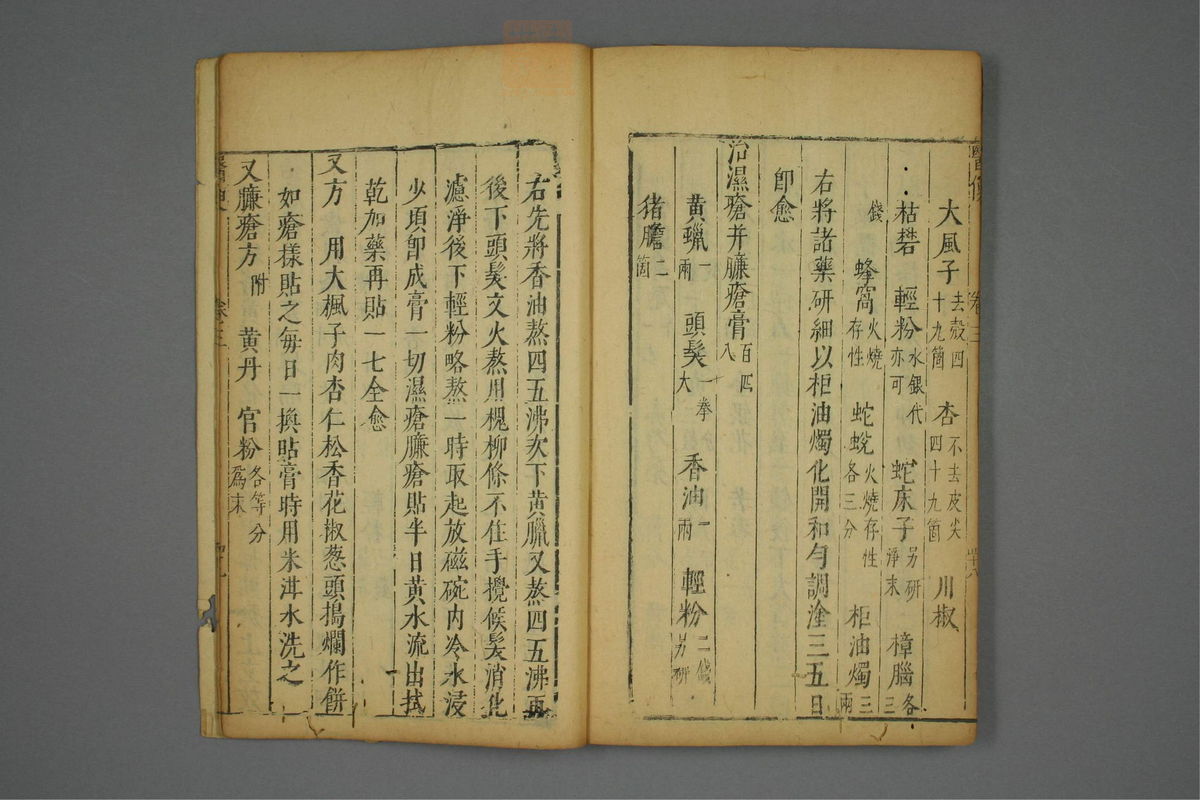 大風子去殻四十九箇 杏不去皮尖四十九箇 川椒
枯礬 輕粉水銀代亦可 蛇床子另研淨末 樟腦各三
錢 蜂窩火燒存性 蛇蛻火燒存性各三分 柜油燭三兩
右將諸藥研細以柜油燭化開和勻調塗三五日
卽愈
治濕瘡并臁瘡膏百四八
黄蠟一兩 頭髪一拳大 香油一兩 輕粉二錢另研
猪膽二箇
右先將香油熬四五沸次下黄臘又熬四五沸再
後下頭髪文火熬用槐柳條不住手攪候髪消化
濾淨後下輕粉略熬一時取起放磁碗内冷水浸
少頃卽成膏一切濕瘡臁瘡貼半日黄水流出拭
乾加藥再貼一七全愈
又方 用大楓子肉杏仁松香花椒葱頭搗爛作餅
如瘡様貼之毎日一換貼膏時用米泔水洗之
又臁瘡方附 黄丹 官粉各等分爲末